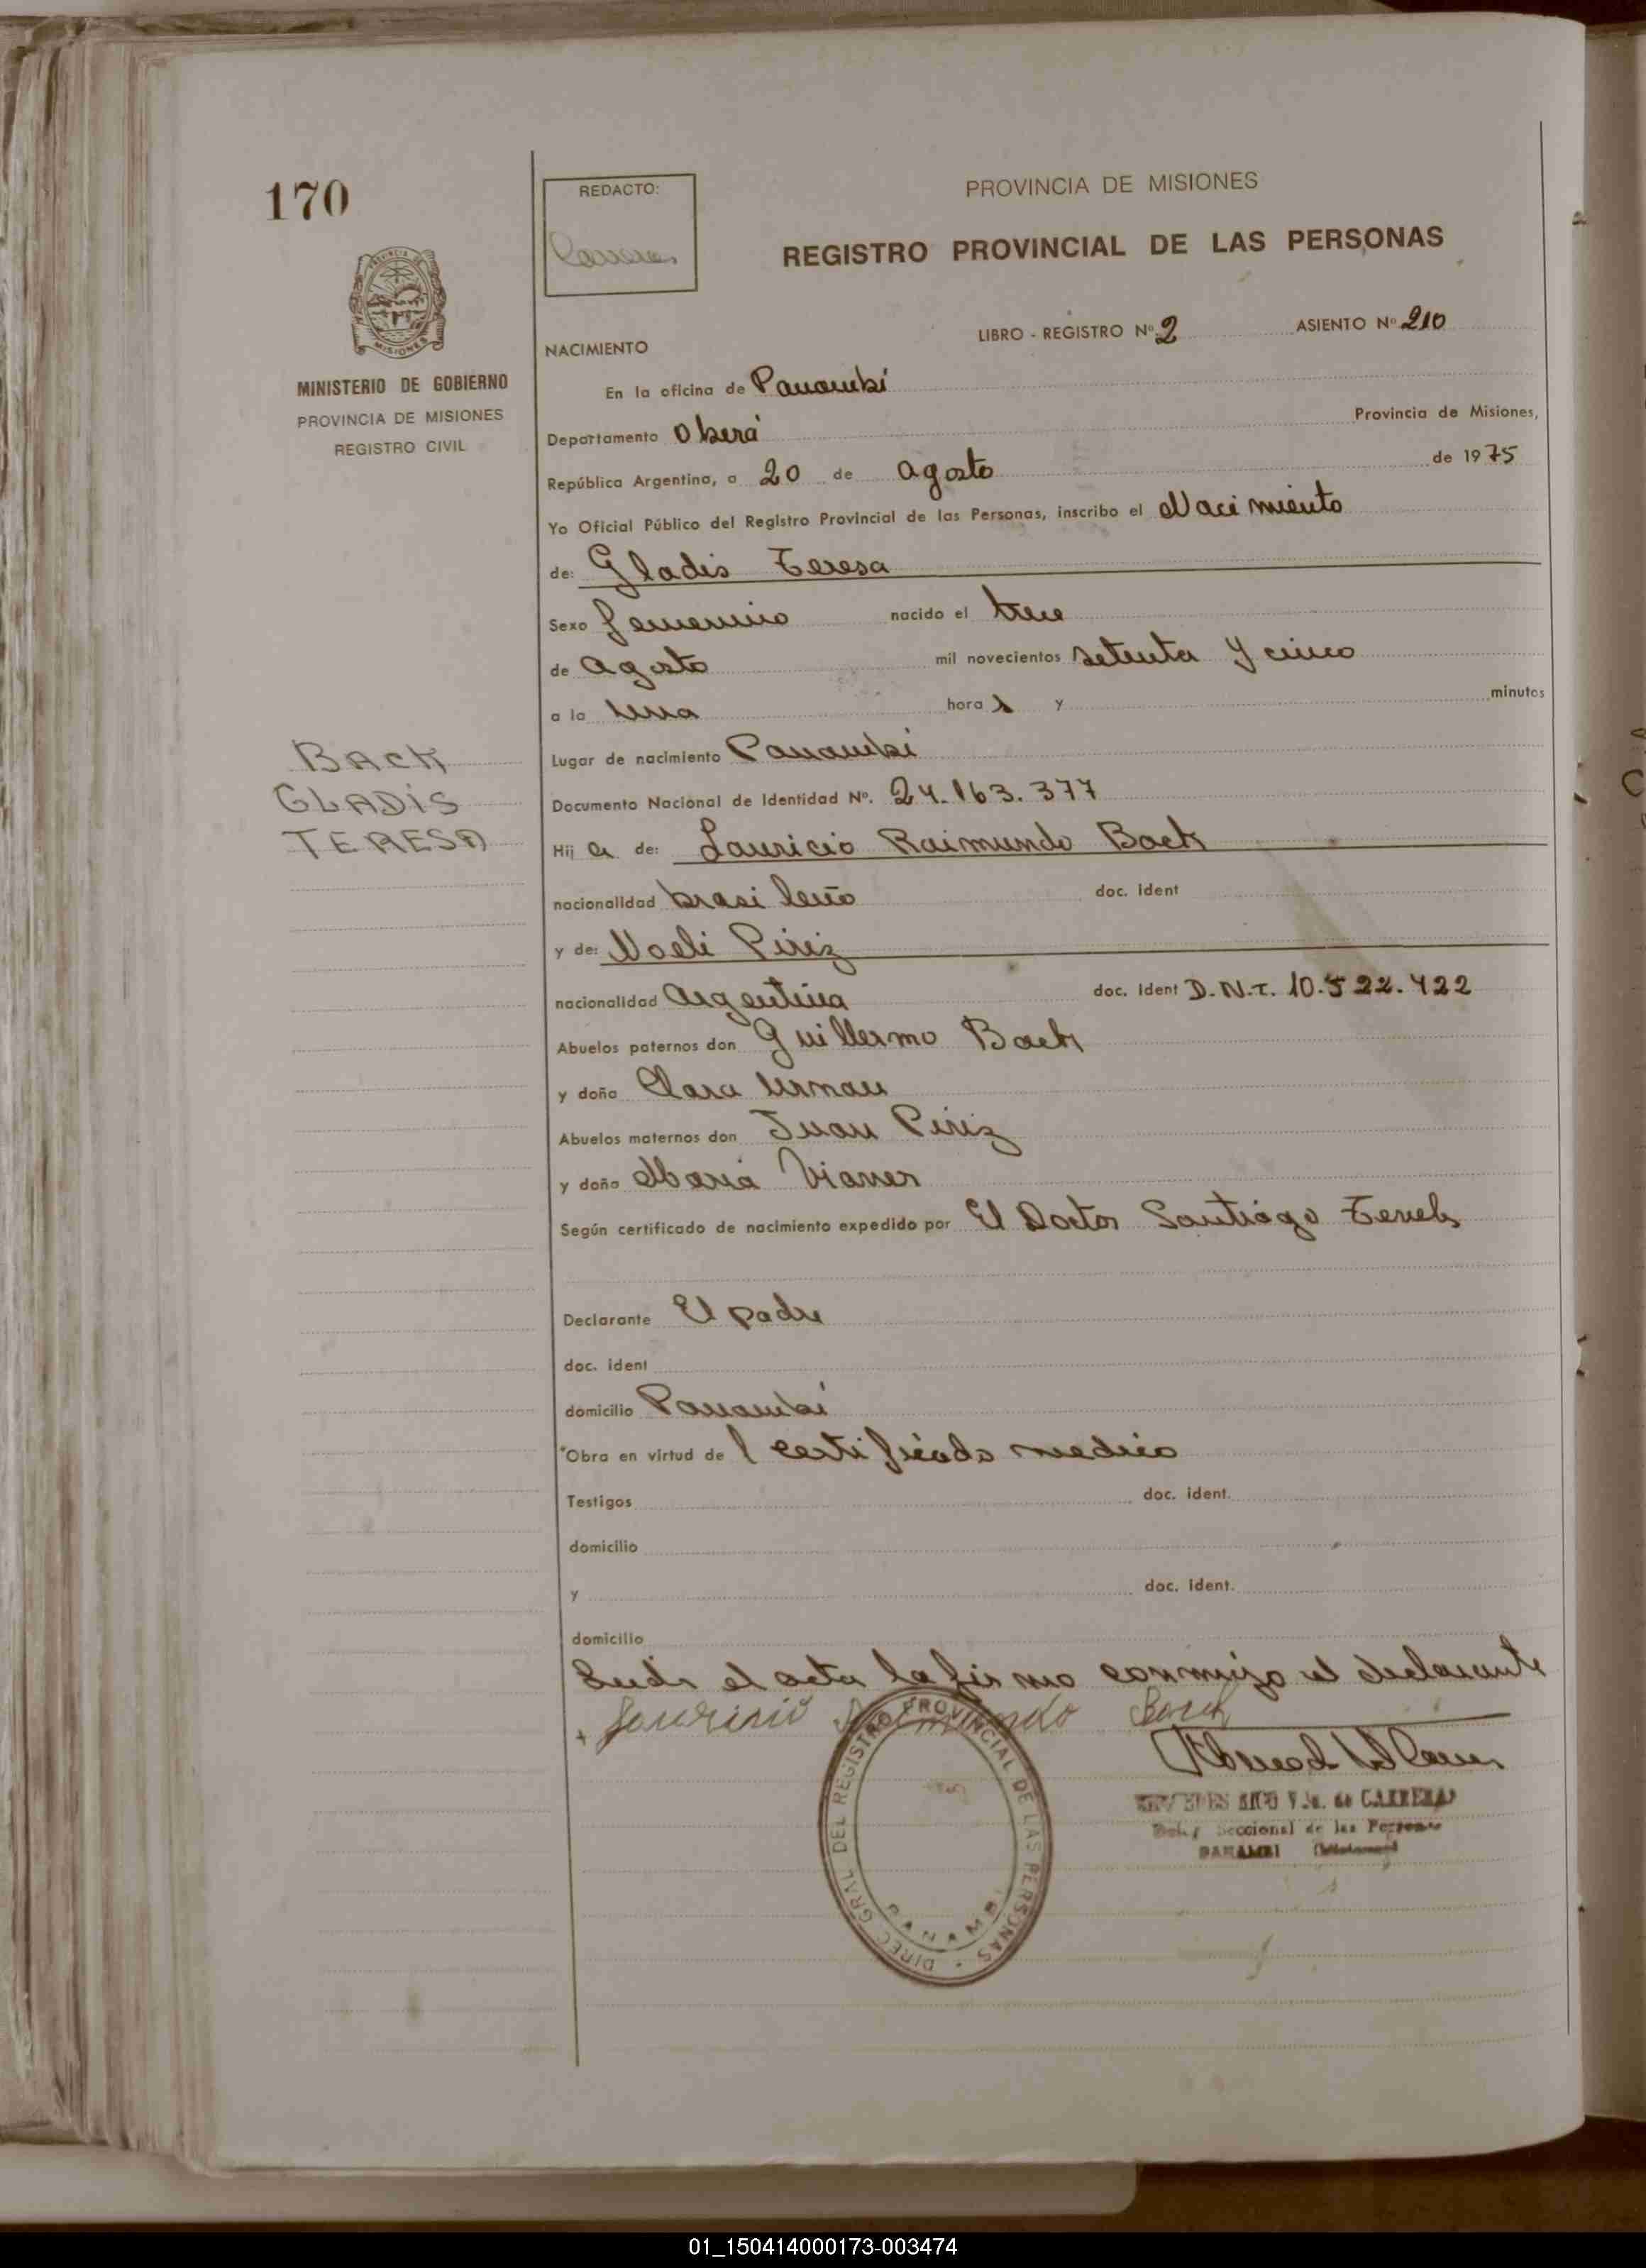 170
REDACTO:
Carrera
PROVINCIA DE MISIONES
REGISTRO PROVINCIAL DE LAS PERSONAS
MISIONES
MINISTERIO DE GOBIERNO
PROVINCIA DE MISIONES
REGISTRO CIVIL
NACIMIENTO
LIBRO - REGISTRO Nº 2 ASIENTO Nº 210
En la oficina de Panambí
Departamento Oberá Provincia de Misiones,
República Argentina, a 20 de agosto de 1975
Yo Oficial Público del Registro Provincial de las Personas, inscribo el Nacimiento
de: Gladis Teresa
Sexo femenino nacido el trece
de agosto mil novecientos setenta y cinco
a la una hora s y minutos
Lugar de nacimiento Panambí
BACK
GLADIS
TERESA
Documento Nacional de Identidad Nº. 24.163.377
Hij a de: Lauricio Raimundo Back
nacionalidad brasileño doc. ident
y de: Noeli Piriz
nacionalidad argentina doc. ident D.N.I. 10.522.422
Abuelos paternos don Guillermo Back
y doña Clara Urnau
Abuelos maternos don Juan Piriz
y doña María
Según certificado de nacimiento expedido por El Doctor Santiago
Declarante El padre
doc. ident
domicilio Panambí
Obra en virtud de l certificado medico
Testigos doc. ident.
domicilio
y doc. ident.
domicilio
Leida el acta la firmo conmigo el declarante
Lauricio Raimundo Back
DIREC. GRAL DEL REGISTRO PROVINCIAL DE LAS PERSONAS
PANAMBI
Vda. de CARRERA
Seccional de las Personas
PANAMBI
01_150414000173-003474